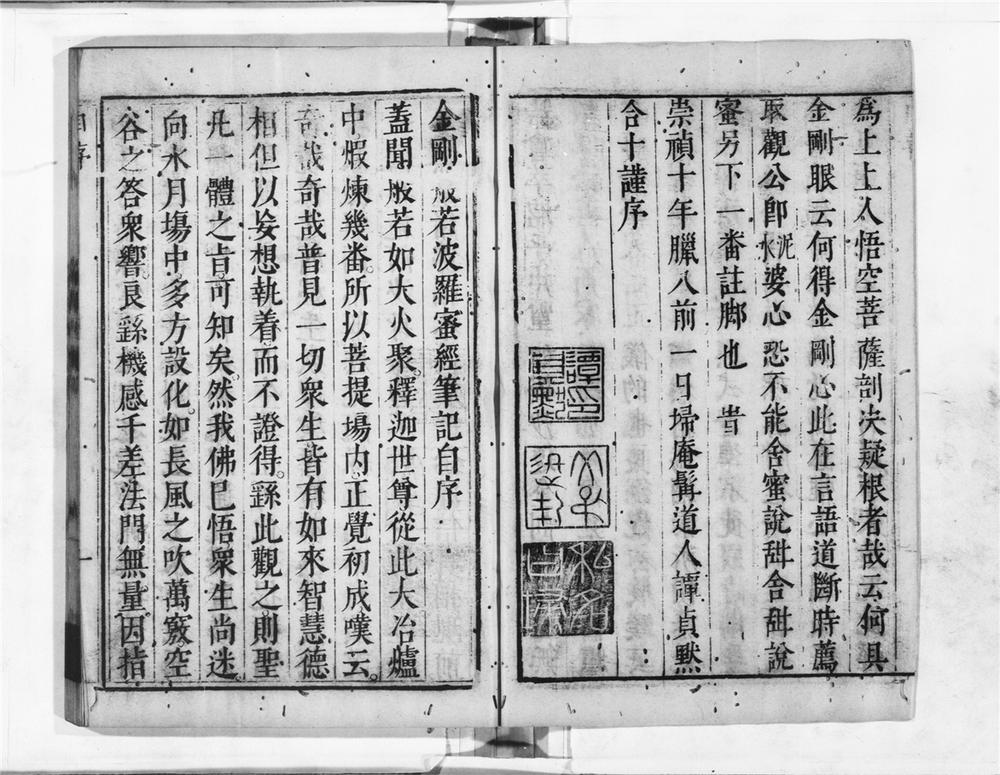 爲上上人悟空菩薩剖决疑根者哉云何具
金剛眼云何得金剛心此在言語道斷時薦
取觀公卽泥水婆心恐不能舍蜜說甜合甜說
蜜另下一番註脚也 旹
崇禎十年臘八前一日埽庵髯道人譚貞默
合十謹序
譚印貞默
金剛般若波羅蜜經筆記自序
蓋聞般若如大火聚釋迦世尊從此大冶爐
中煆煉幾番所以菩提場内正覺初成嘆云
奇哉奇哉普見一切衆生皆有如來智慧德
相但以妄想執着而不證得繇此觀之則聖
凡一體之旨可知矣然我佛已悟衆生尚迷
向水月塲中多方設化如長風之吹萬竅空
谷之答衆響良繇機感千差法門無量因指
自序